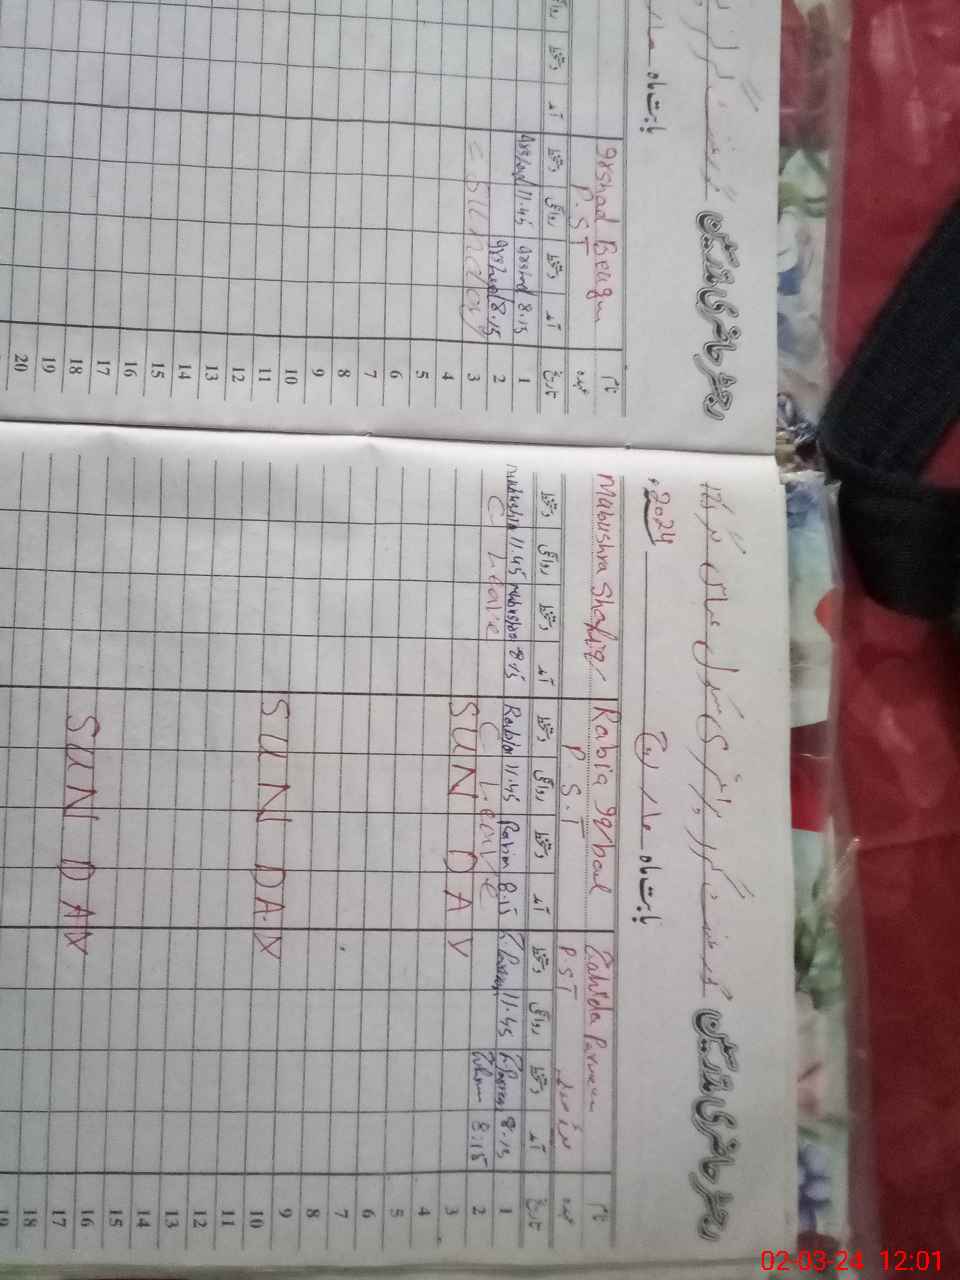 رجسٹر حاضری مدرسین گورنمنٹ گرلز پرائمری سکول
بابت ماہ مارچ 2024ء
نام
Zahida Parveen
Rabia Iqbal
Mubushra Shafiq
عہدہ
P.S.T
P.S.T
تاریخ
آمد دستخط روانگی دستخط
آمد دستخط روانگی دستخط
آمد دستخط روانگی دستخط
1
8.15
11.45
Rabia 8.15
Rabia 11.45
8.15
11.45
2
8:15
C. Leave
C. Leave
3
SUNDAY
4
5
6
7
8
9
10
SUNDAY
11
12
13
14
15
16
17
SUNDAY
18
19
رجسٹر حاضری مدرسین گورنمنٹ گرلز
بابت ماہ مارچ
نام
Irshad Beugm
عہدہ
P.ST
تاریخ
آمد دستخط روانگی دستخط
آمد دستخط روانگی
1
8.15 Irshad
11.45 Irshad
2
8.15 Irshad
3
Sunday
4
5
6
7
8
9
10
11
12
13
14
15
16
17
18
19
20
02-03-24 12:01